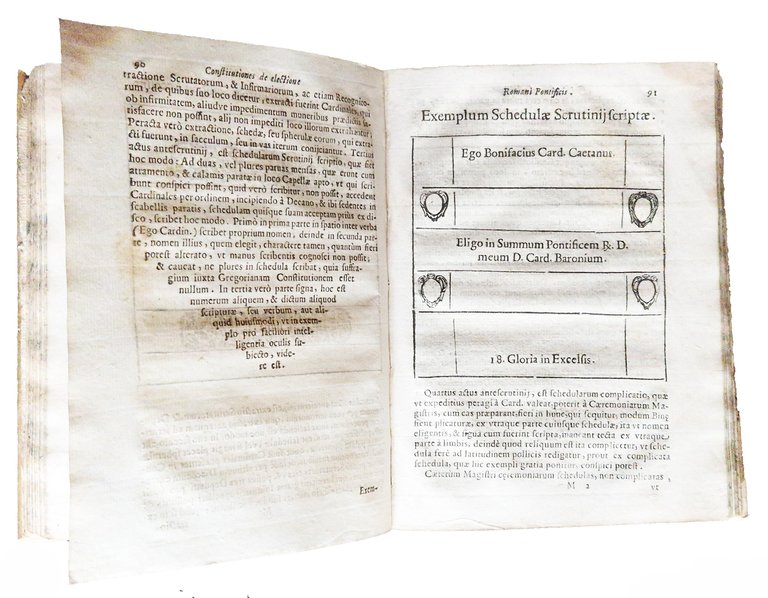 90
Constitutiones de electione
tractione Scrutatorum, & Infirmariorum, ac etiam Recognico-
rum, de quibus suo loco dicetur, extracti fuerint Cardinales, qui
ob infirmitatem, aliudve impedimentum muneribus prædictis sa-
tisfacere non possint, alij non impediti loco illorum extrahantur;
Peracta verò extractione, schedæ, seu spherulæ eorum, qui extra-
cti fuerunt, in sacculum, seu in vas iterum conijciantur. Tertius
actus antescrutinij, est schedularum Scrutinij scriptio, quæ fiet
hoc modo: Ad duas, vel plures paruas mensas, quæ erunt cum
atramento, & calamis paratæ in loco Capellæ apto, vt qui scri-
bunt conspici possint, quid verò scribitur, non possit, accedent
Cardinales per ordinem, incipiendo à Decano, & ibi sedentes in
scabellis paratis, schedulam quisque suam acceptam priùs ex di-
sco, scribet hoc modo. Primò in prima parte in spatio inter verba
(Ego Cardin.) scribet proprium nomen, deinde in secunda par-
te, nomen illius, quem elegit, charactere tamen, quantùm fieri
poterit alterato, vt manus scribentis cognosci non possit;
& caueat, ne plures in schedula scribat, quia suffra-
gium iuxta Gregorianam Constitutionem esset
nullum. In tertia verò parte signa, hoc est
numerum aliquem, & dictum aliquod
scripturæ, seu verbum, aut ali-
quid huiusmodi, vt in exem-
plo pro faciliori intel-
ligentia oculis su-
biecto, vide-
re est.
Exem-
Romani Pontificis.
91
Exemplum Schedulæ Scrutinij scriptæ.
Ego Bonifacius Card. Caetanus.
Eligo in Summum Pontificem R. D.
meum D. Card. Baronium.
18. Gloria in Excelsis.
Quartus actus antescrutinij, est schedularum complicatio, quæ
vt expeditius peragi à Card. valeat, poterit à Cæremoniarum Ma-
gistris, cum eas præparant, fieri in hunc, qui sequitur, modum Binę
fient plicaturæ, ex vtraque parte cuiusque schedulæ, ita vt nomen
eligentis, & signa cum fuerint scripta, maneant tecta ex vtraque
parte à limbis, deindè quod reliquum est ita complicetur, vt sche-
dula ferè ad latitudinem pollicis redigatur, prout ex complicata
schedula, quæ hic exempli gratia ponitur, conspici potest.
Cæterum Magistri cæremoniarum schedulas, non complicatas,
M 2
vt